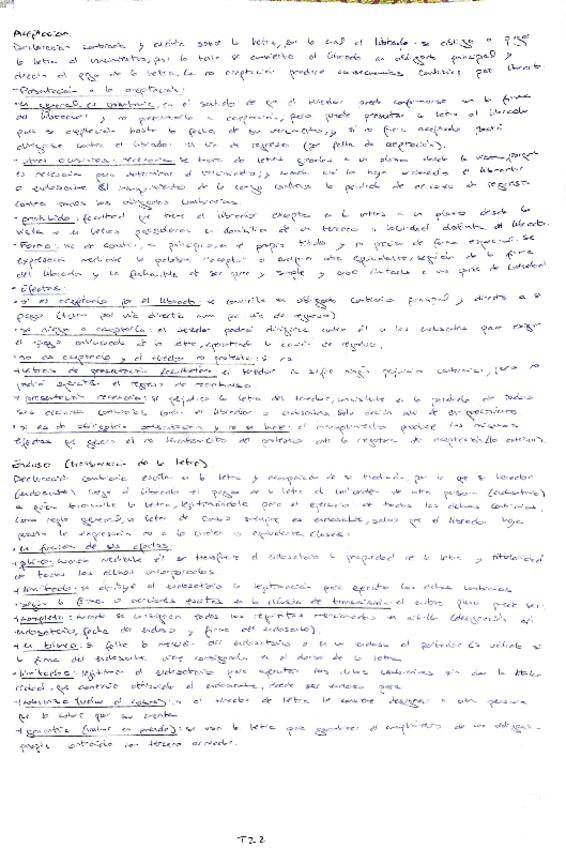 Aceptación.
Declaración cambiaria y escrita sobre la letra, por la cual el librado se obliga a pagar
la letra al vencimiento, por lo tanto se convierte el librado en obligado principal y
directo al pago de la letra. La no aceptación produce consecuencias
- Presentación a la aceptación:
- en general es voluntaria: en el sentido de que el tenedor puede conformarse con la firma
del librador y no presentarla a aceptación, pero puede presentar la letra al librado
para su aceptación hasta la fecha de su vencimiento, y si no fuera aceptada podrá
dirigirse contra el librador en vía de regreso (por falta de aceptación).
necesaria: se trata de letras giradas a un plazo desde la vista, porque
es necesaria para determinar el vencimiento; y cuando así lo haya ordenado el librador
o endosante. El incumplimiento de la carga conlleva la pérdida de acciones de regreso
contra todos los obligados cambiarios.
- prohibido: facultad que tiene el librador excepto en la letra a un plazo desde la
vista o en letras pagaderas en domicilio de un tercero o localidad distinta al librado.
- Forma: ha de constar, en principio, en el propio título y no precisa de forma especial. Se
expresará mediante la palabra "acepto" o cualquier otra equivalente, seguida de la firma
del librado y la fecha. Ha de ser pura y simple y puede limitarla a una parte de cantidad
- Efectos:
- si es aceptada por el librado: se convierte en obligado cambiario principal y directo a su
pago (tanto por vía directa como por vía de regreso)
- se niega a aceptarla: el tenedor podrá dirigirse contra él a los endosantes para exigir
el pago anticipado de la letra, ejercitando la acción de regreso.
- no es aceptada y el tenedor no protesta: si es
+ letra de presentación facultativa: el tenedor no sufre ningún perjuicio cambiario, pero no
podrá ejercitar el regreso de reembolso
+ presentación necesaria: se perjudica la letra del tenedor, consistente en la pérdida de todas
sus acciones cambiarias contra el librador o endosantes. Sólo acción
- si es de obligatoria presentación y no se hace: el incumplimiento produce los mismos
efectos que genera el no levantamiento del protesto ante la negativa de aceptación (lo anterior).
Endoso (transmisión de la letra).
Declaración cambiaria escrita en la letra y acompañada de su tradición, por la que su tenedor
(endosante) ruega al librado el pago de la letra al vencimiento de otra persona (endosatario)
a quien transmite la letra, legitimándole para el ejercicio de todos los derechos cambiarios.
Como regla general, la letra de cambio siempre es endosable, salvo que el librador haya
puesto la expresión no a la orden o equivalente. Clases:
- en función de sus efectos:
+ pleno: aquel mediante el que se transfiere al endosatario la propiedad de la letra y titularidad
de todos los derechos incorporados
+ limitado: se atribuye al endosatario la legitimación para ejercitar los derechos cambiarios
- según la forma o menciones escritas en la cláusula de transmisión: el endoso pleno puede ser:
+ completo: cuando se consignan todos los requisitos mencionados en él (designación del
endosatario, fecha de endoso y firma del endosante).
+ en blanco: si falta la mención del endosatario o es un endoso al portador. Es válido si
la firma del endosante viene consignada en el dorso de la letra
- limitados: legitiman al endosatario para ejercitar los derechos cambiarios sin dar la titula-
ridad, que continúa
(valor al cobro): si el tenedor de letra le conviene designar a otra persona
que la cobre por su cuenta
+ garantía (valor en prenda): se usa la letra para garantizar el cumplimiento de una obligac.
propia contraída con tercero acreedor.
T2.2